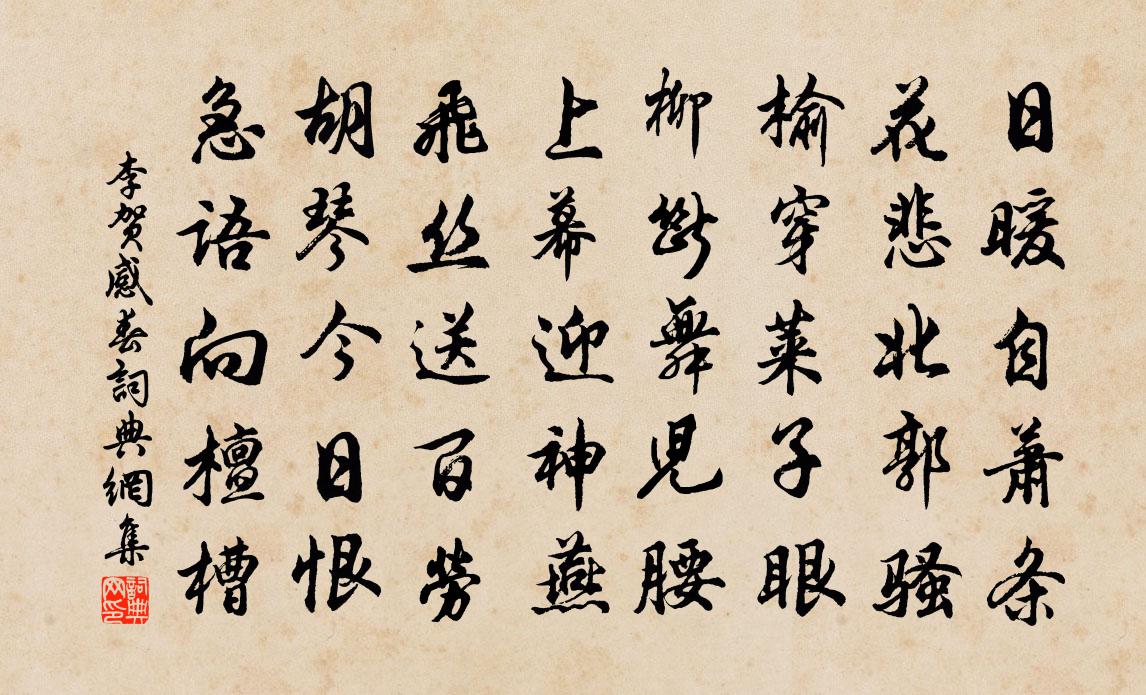 日暖自萧条
花悲北郭骚
榆穿莱子眼
柳断舞児腰
上幕迎神燕
飛丝送百劳
胡琴今日恨
急语向檀槽
李贺感春詞典網集
詞典